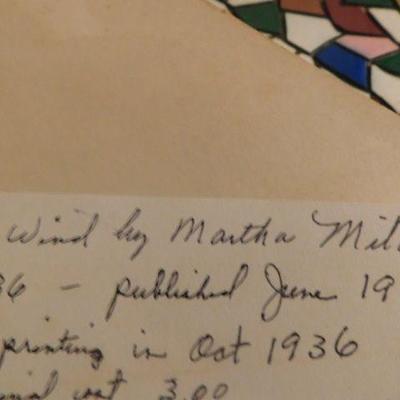 Wind by Martha Mit
36 - published June 19
printing in Oct 1936
inal cost 3.00